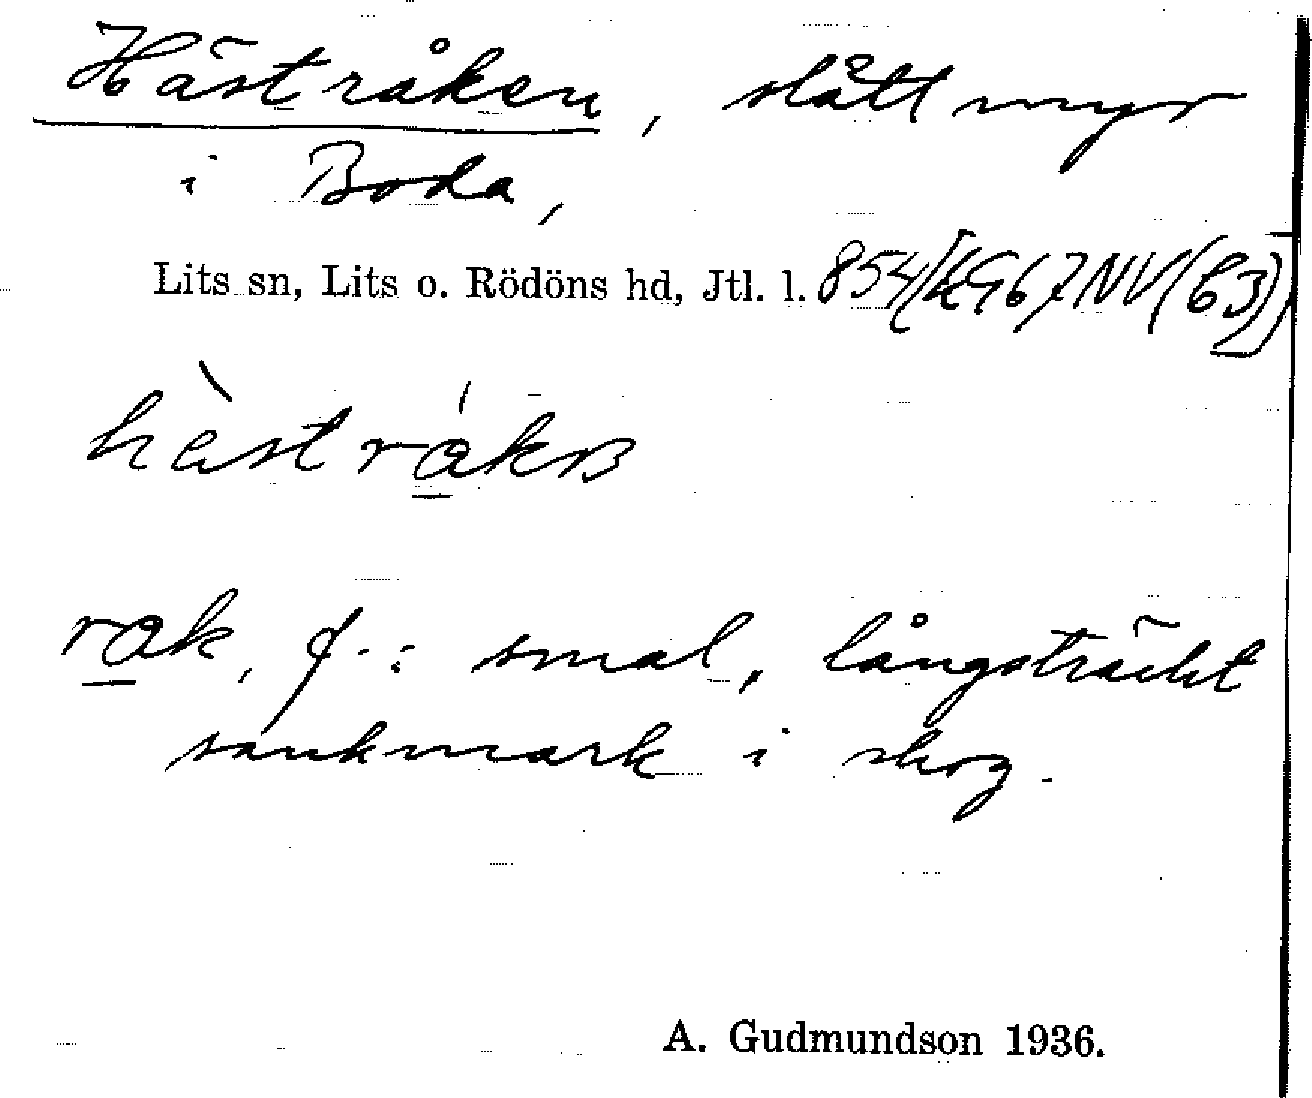 Hästråken, slåttmyr
i Boda,
Lits sn, Lits o. Rödöns hd, Jtl. l. 854/(4967NV(63))
hàst råkɷ
råk, f.: smal, långsträckt
sankmark i skog.
A. Gudmundson 1936.